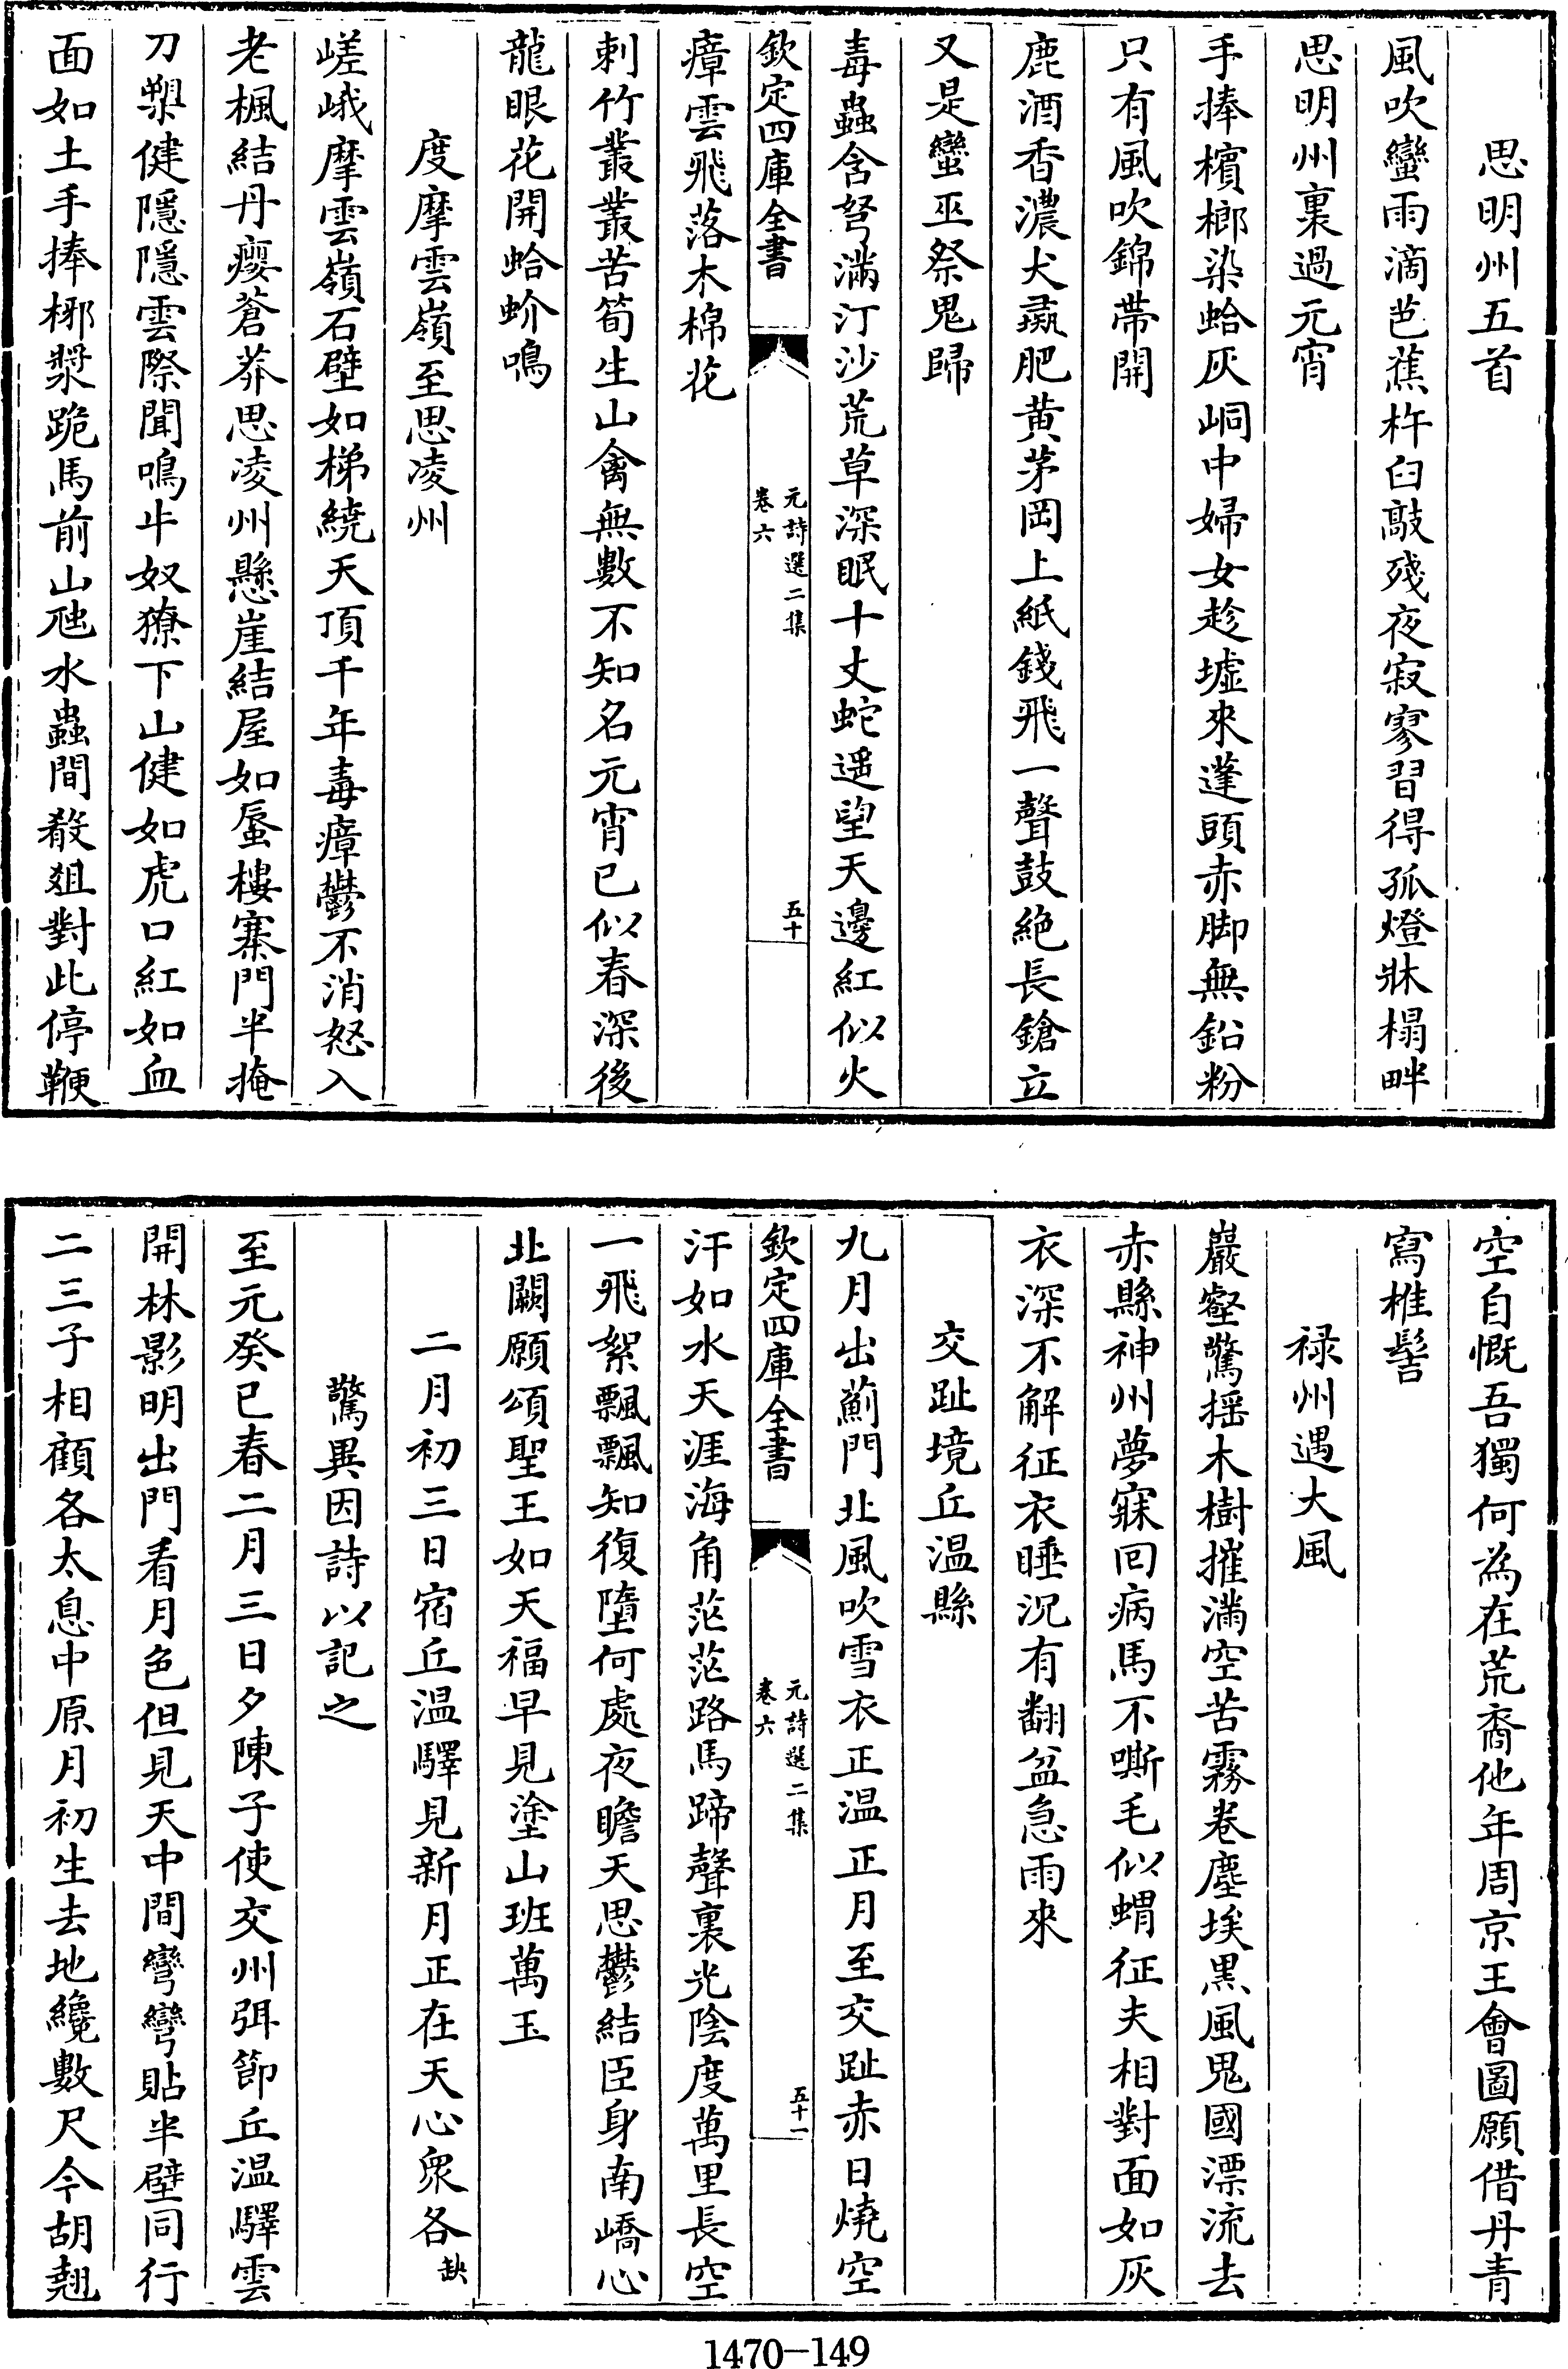 思明州五首
風吹蠻雨滴芭蕉杵臼敲殘夜寂寥習得孤燈牀榻畔
思明州裏過元宵
手捧檳榔染蛤灰峒中婦女趁墟來蓬頭赤脚無鉛粉
只有風吹錦帶開
鹿酒香濃犬彘肥黄茅岡上紙錢飛一聲鼓絶長鎗立
又是蠻巫祭鬼歸
毒蟲含弩滿汀沙荒草深眠十丈蛇遥望天邊紅似火
欽定四庫全書
元詩選二集
卷六
五十
瘴雲飛落木棉花
刺竹叢叢苦筍生山禽無數不知名元宵已似春深後
龍眼花開蛤蚧鳴
度摩雲嶺至思凌州
嵯峨摩雲嶺石壁如梯繞天頂千年毒瘴鬱不消怒入
老楓結丹癭蒼莽思凌州懸崖結屋如蜃樓寨門半掩
刀槊健隱隱雲際聞鳴牛奴獠下山健如虎口紅如血
面如土手捧椰漿跪馬前山虺水蟲間殽俎對此停鞭
空自慨吾獨何為在荒裔他年周京王會圖願借丹青
寫椎髻
禄州遇大風
巖壑驚揺木樹摧滿空苦霧卷塵埃黒風鬼國漂流去
赤縣神州夢寐回病馬不嘶毛似蝟征夫相對面如灰
衣深不解征衣睡況有翻盆急雨來
交趾境丘温縣
九月出薊門北風吹雪衣正温正月至交趾赤日燒空
欽定四庫全書
元詩選二集
卷六
五十一
汗如水天涯海角茫茫路馬蹄聲裏光陰度萬里長空
一飛絮飄飄知復墮何處夜瞻天思鬱結臣身南嶠心
北闕願頌聖王如天福早見塗山班萬玉
二月初三日宿丘温驛見新月正在天心衆各缺
驚異因詩以記之
至元癸巳春二月三日夕陳子使交州弭節丘温驛雲
開林影明出門看月色但見天中間彎彎貼半壁同行
二三子相顧各太息中原月初生去地纔數尺今胡翹
1470-149